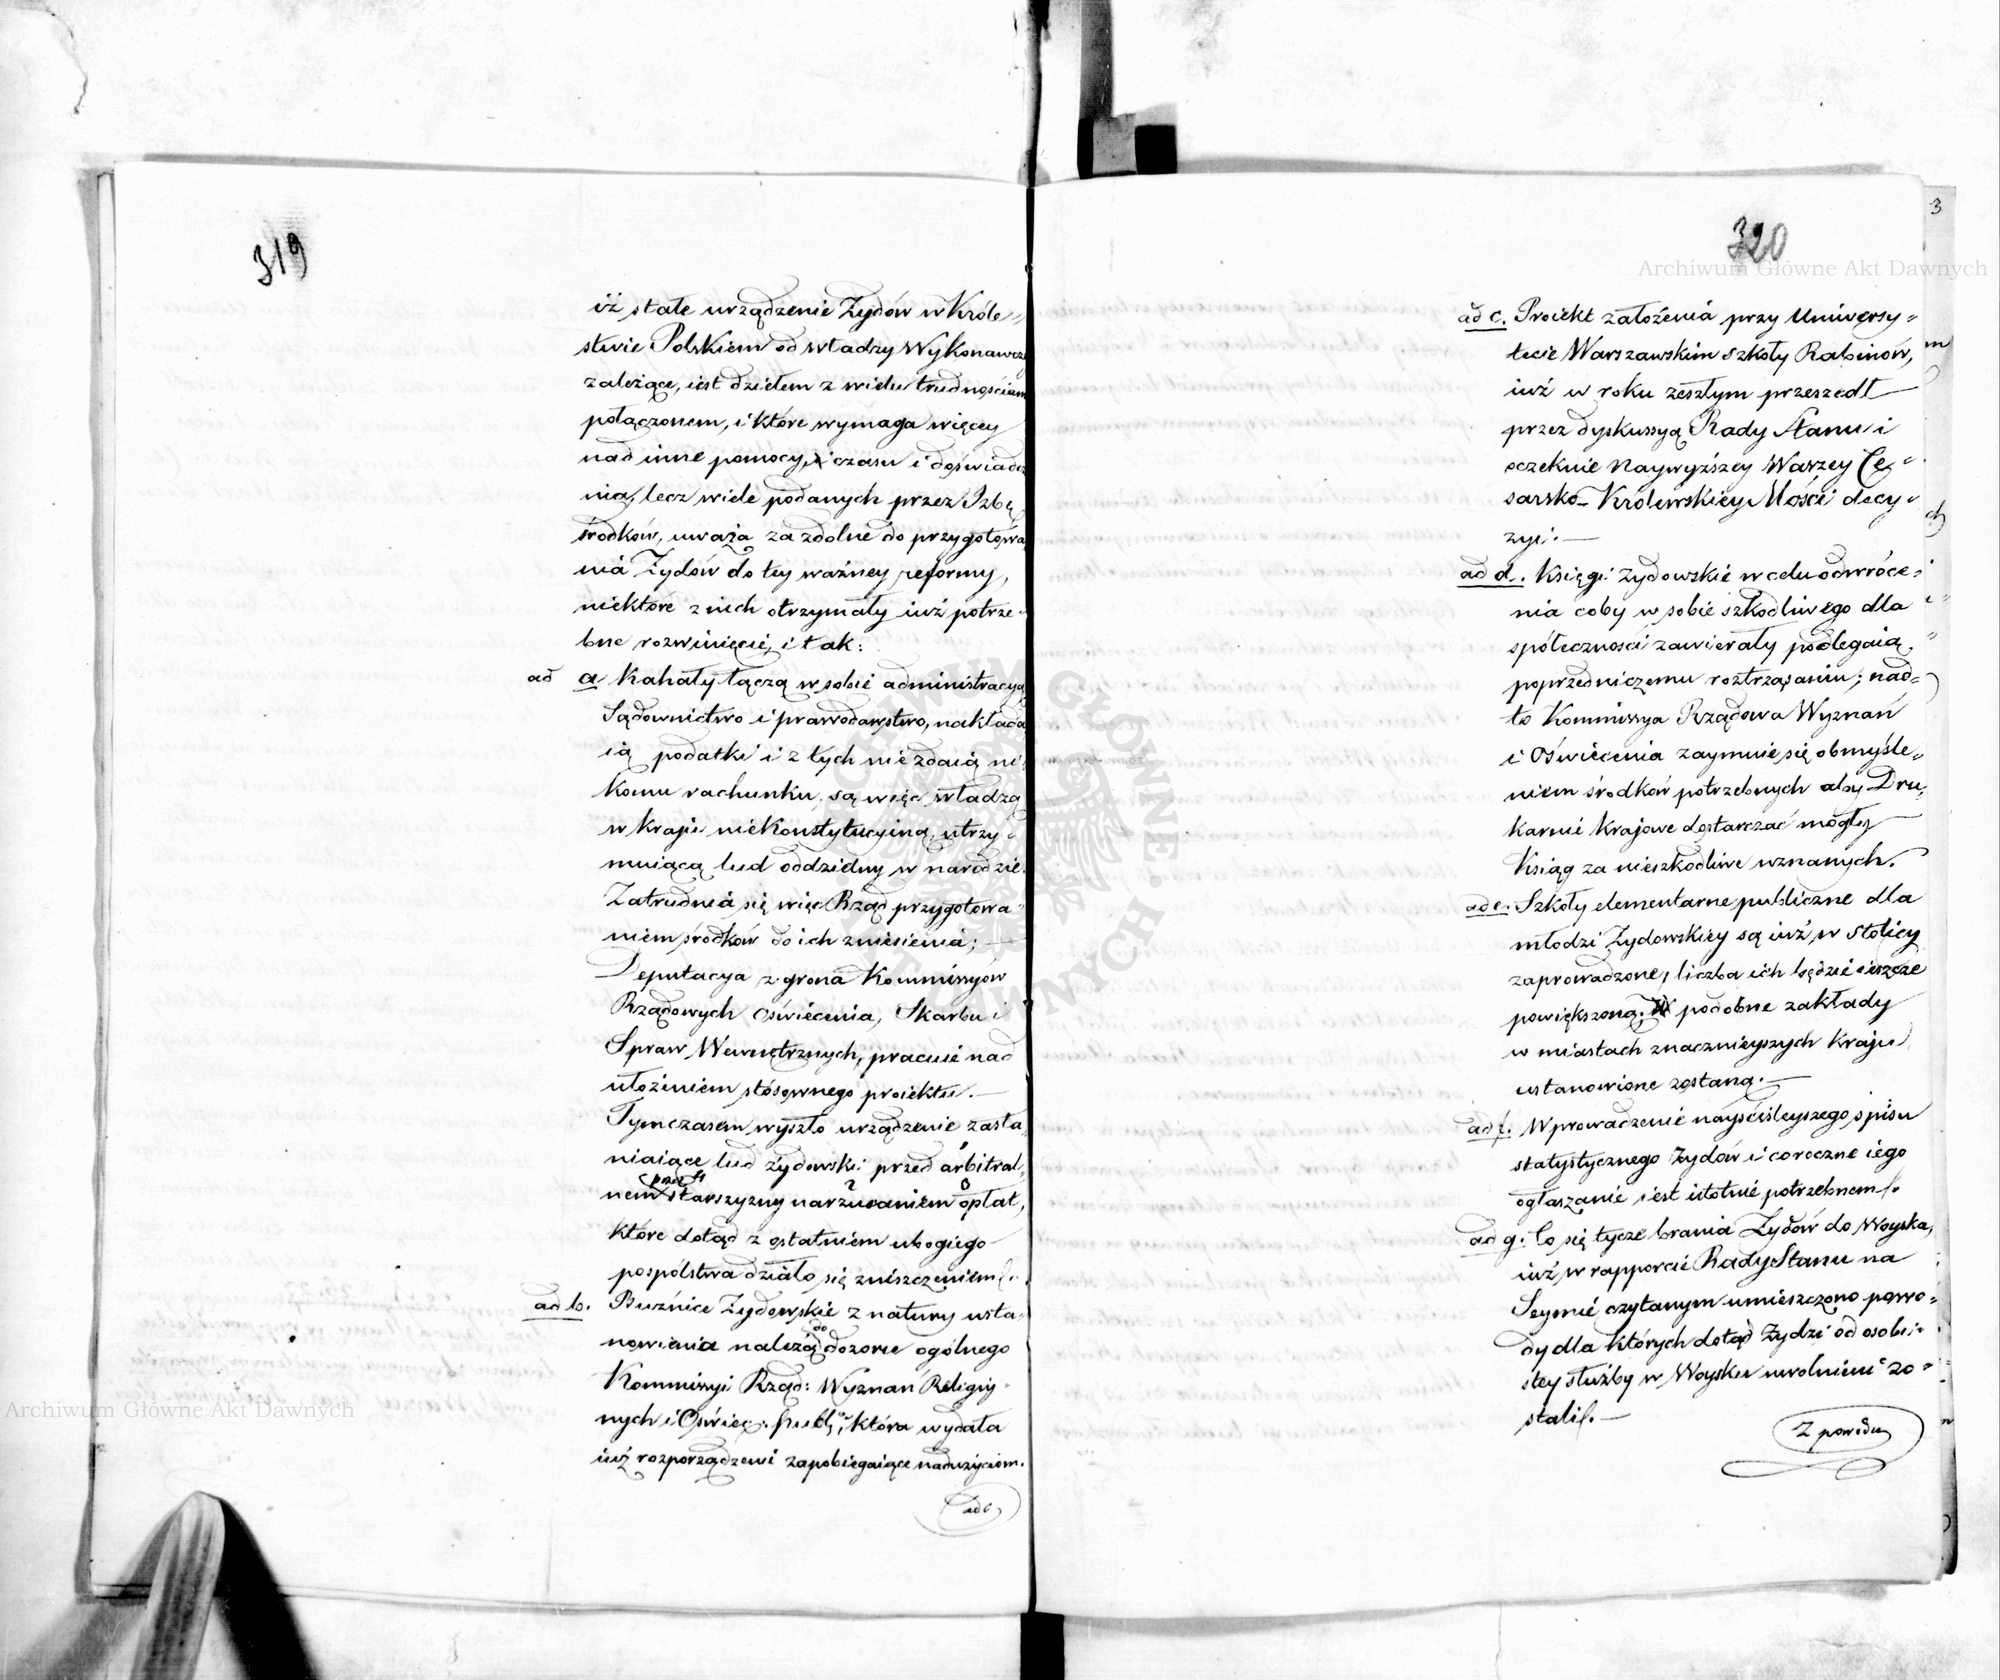 319
iż stałe urządzenie Żydów w Króle=
stwie Polskiem od władzy Wykonawcz
zależące, iest dziełem z wielu trudnościam
połączonem, i które wymaga więcey
nad inne pomocy, czasu i doświadcz
nia, lecz wiele podanych przez Izbę
środków, uważa za zdolne do przygotowa
nia Żydów do tey ważney reformy,
niektóre z nich otrzymały iuż potrze-
bne rozwinięcie, i tak:
ad a Kahały łączą w sobie administracyą
Sądownictwo i prawodawstwo, nakłada
ią podatki i z tych nie zdaią ni
komu rachunku, są więc władzą
w kraju niekonstytucyiną, utrzy-
muiącą lud oddzielny w narodzie.
Zatrudnia się więc Rząd przygotowa-
niem środków do ich zniesienia; —
Deputacya z grona Kommissyów
Rządowych Oświecenia, Skarbu i
Spraw Wewnętrznych, pracuie nad
ułożeniem stósownego proiektu. —
Tymczasem wyszło urządzenie zasła-
niaiące lud żydowski przed arbitral-
nem przez starszyzny narzucaniem opłat,
które dotąd z ostatniem ubogiego
pospólstwa działo się zniszczeniem.
ad b. Buźnice Żydowskie z natury usta-
nowienia należą do dozoru ogólnego
Kommissyi Rząd: Wyznań Religiy-
nych i Oświec: publ:, która wydała
iuż rozporządzeni zapobiegaiące nadużyciom.
ad c
3
320
Archiwum Główne Akt Dawnych
ad c. Proiekt założenia przy Uniwersy=
tecie Warszawskim szkoły Rabinów,
iuż w roku zeszłym przeszedł —
przez dyskussyą Rady Stanu i
oczekuie Naywyższey Waszey Ce=
sarsko-Królewskiey Mości decy-
zyi. —
ad d. Księgi żydowskie w celu odwróce=
nia coby w sobie szkodliwego dla
społeczności zawierały podlegaią
poprzedniczemu roztrząsaniu; nad=
to Kommissya Rządowa Wyznań
i Oświecenia zaymuie się obmyśle=
niem środków potrzebnych aby Dru-
karnie Krajowe dostarczać mogły —
Ksiąg za nieszkodliwe uznanych.
ad e. Szkoły elementarne publiczne dla
młodzi Żydowskiey są iuż w stolicy
zaprowadzone, liczba ich będzie ieszcze
powiększoną. podobne zakłady
w miastach znacznieyszych Kraju
ustanowione zostaną. —
ad f. Wprowadzenie nayściśleyszego spisu
statystycznego Żydów i coroczne iego
ogłaszanie iest istotnie potrzebnem.
ad g. Co się tycze brania Żydów do Woyska,
iuż w rapporcie Rady Stanu na
Seymie czytanym umieszczono powo=
dy dla których dotąd Żydzi od osobi-
stey służby w Woysku uwolnieni zo=
stali. —
Z powodu
Archiwum Główne Akt Dawnych
ARCHIWUM GŁÓWNE AKT DAWNYCH